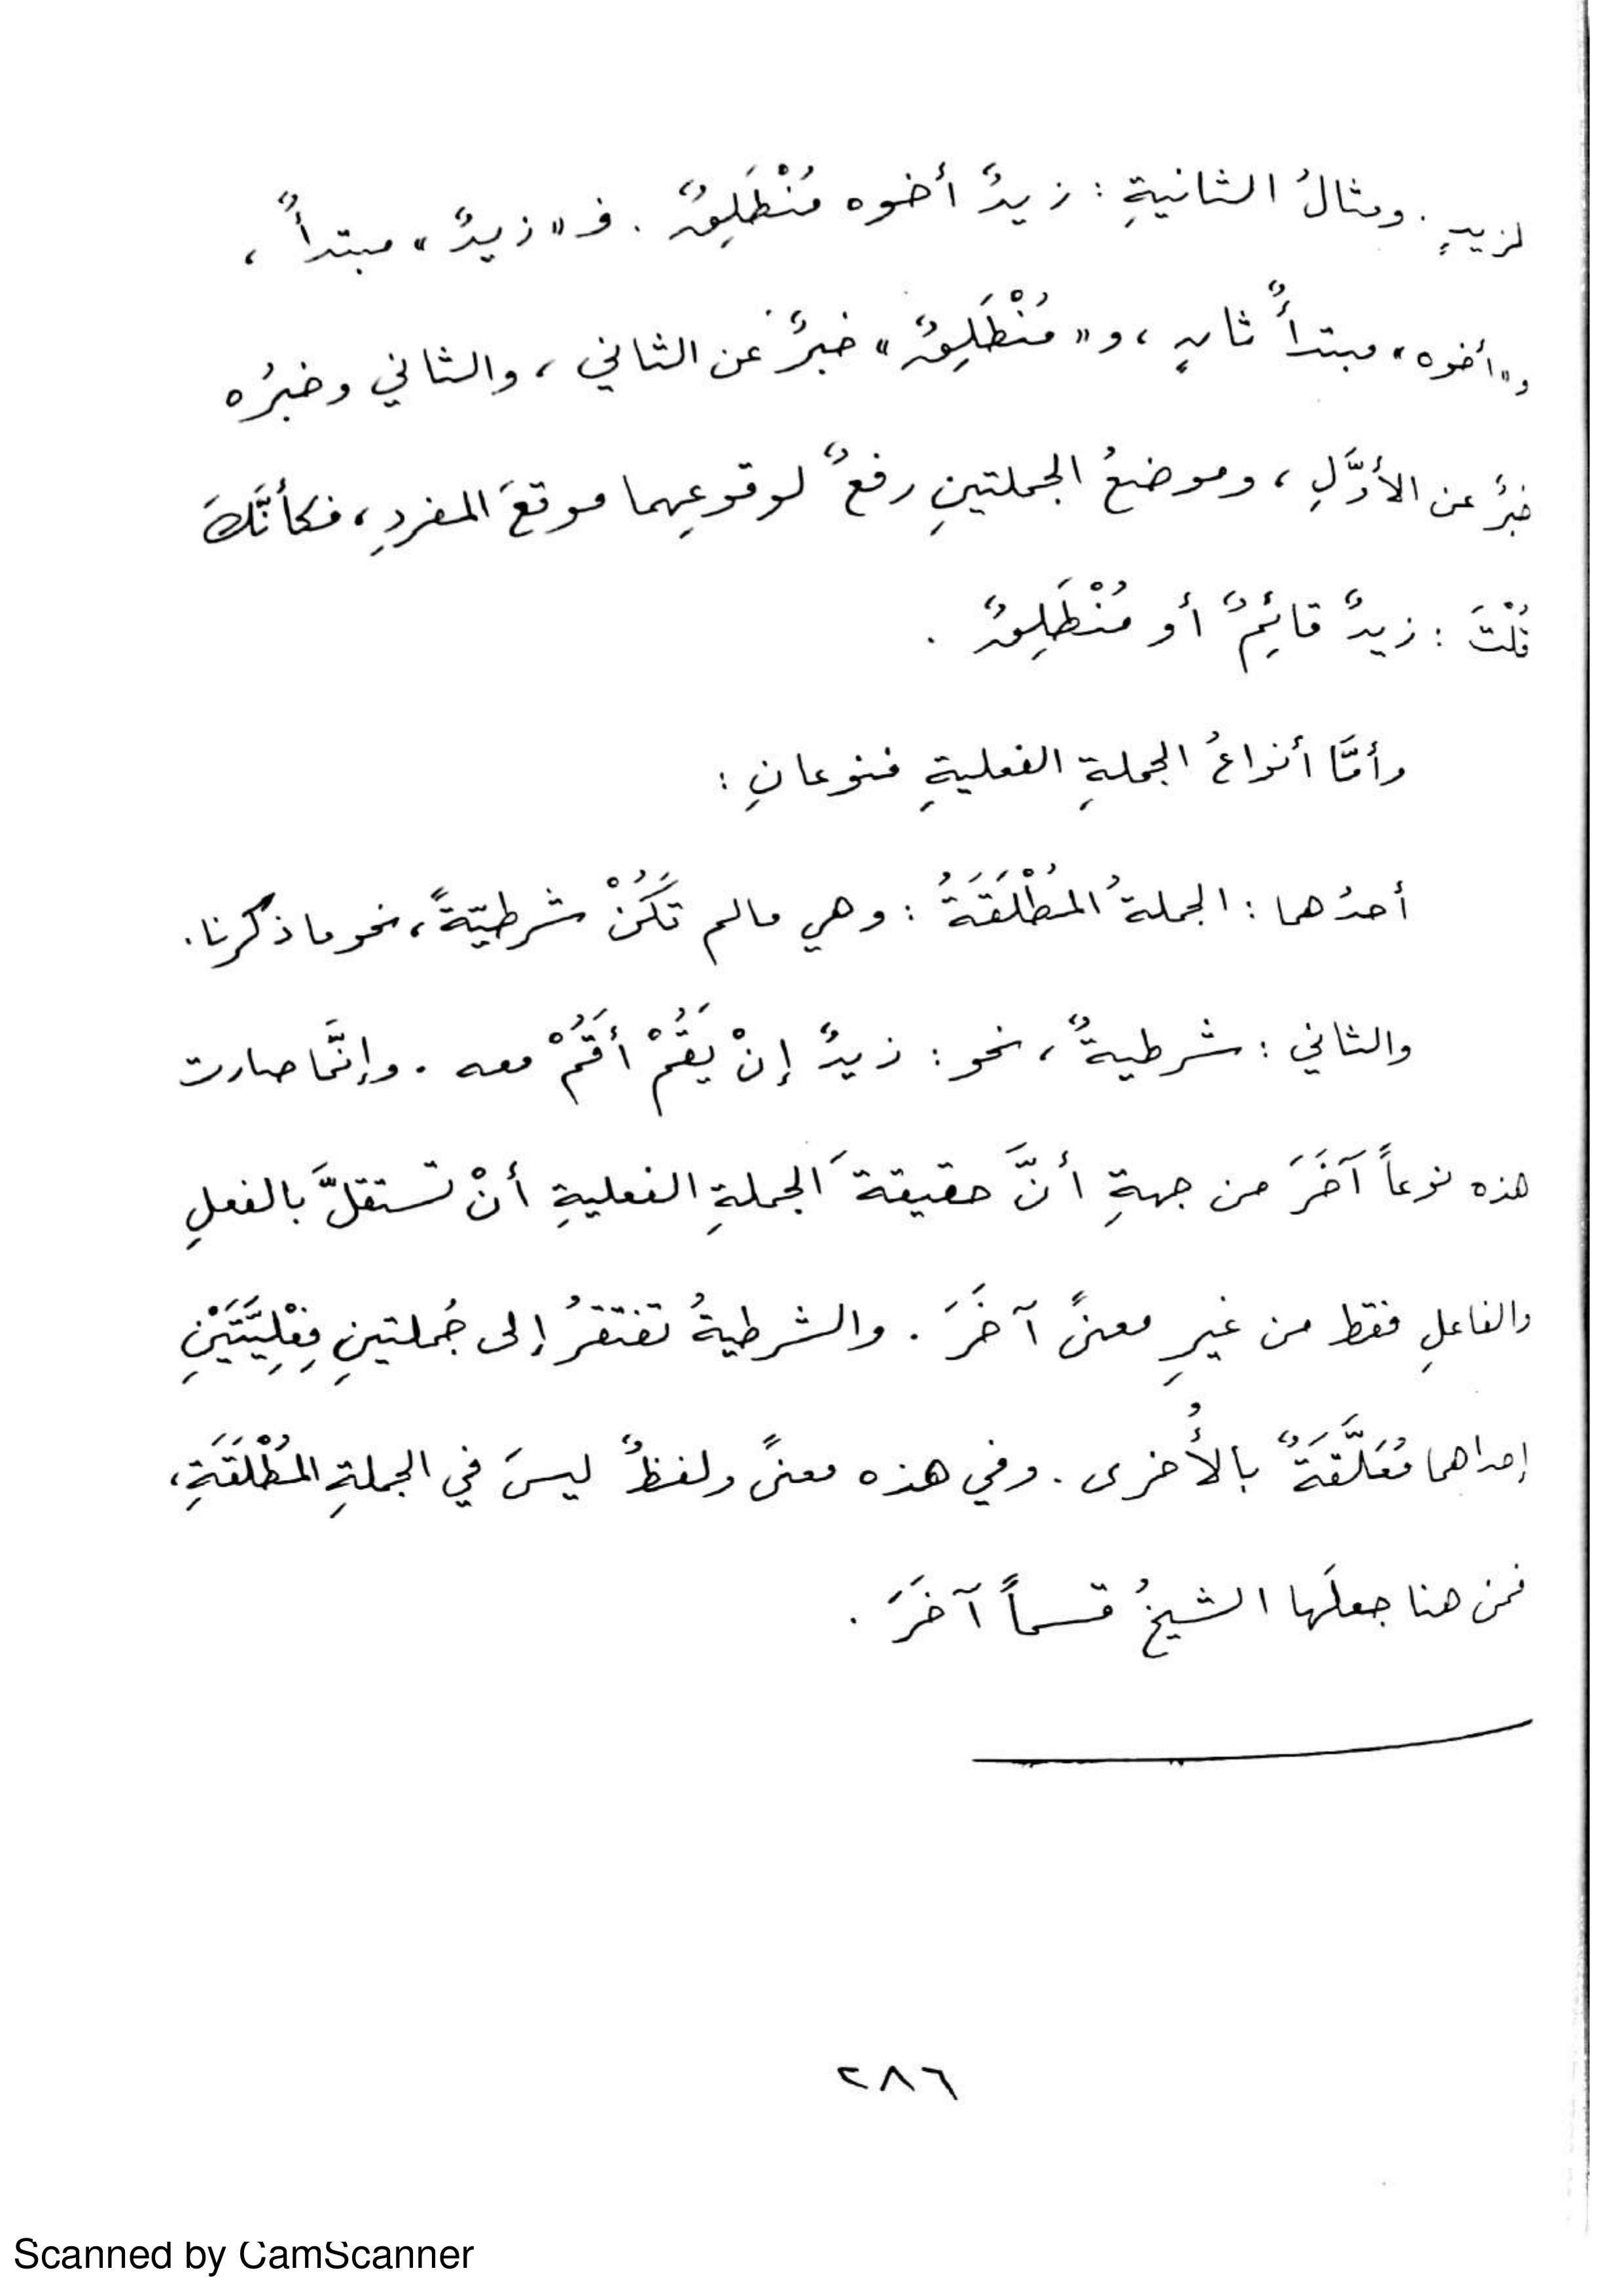 لزيدٍ. ومثالُ الثانيةِ: زيدٌ أخوه مُنْطَلِقٌ. فـ«زيدٌ» مبتدأٌ،
و«أخوه» مبتدأٌ ثانٍ، و«مُنْطَلِقٌ» خبرٌ عن الثاني، والثاني وخبرُه
خبرٌ عن الأوَّلِ، وموضعُ الجملتينِ رفعٌ لوقوعِهما موقعَ المفردِ، فكأنَّكَ
قُلْتَ: زيدٌ قائِمٌ أو مُنْطَلِقٌ.
وأمَّا أنواعُ الجملةِ الفعليةِ فنوعانِ:
أحدُهما: الجملةُ المُطْلَقَةُ: وهي مالم تَكُنْ شرطيّةً، نحو ما ذكرنا.
والثاني: شرطيةٌ، نحو: زيدٌ إنْ يَقُمْ أَقُمْ معه. وإنَّما صارت
هذه نوعاً آخَرَ من جهةِ أنَّ حقيقةَ الجملةِ الفعليةِ أنْ تستقلَّ بالفعلِ
والفاعلِ فقط من غيرِ معنىً آخَرَ. والشرطيةُ تفتقرُ إلى جُملتينِ فِعْلِيَّتَيْنِ
إحداهما مُعَلَّقَةٌ بالأُخرى. وفي هذه معنىً ولفظٌ ليسَ في الجملةِ المُطْلَقَةِ،
فمن هنا جعلَها الشيخُ قسماً آخَرَ.
٢٨٦
Scanned by CamScanner